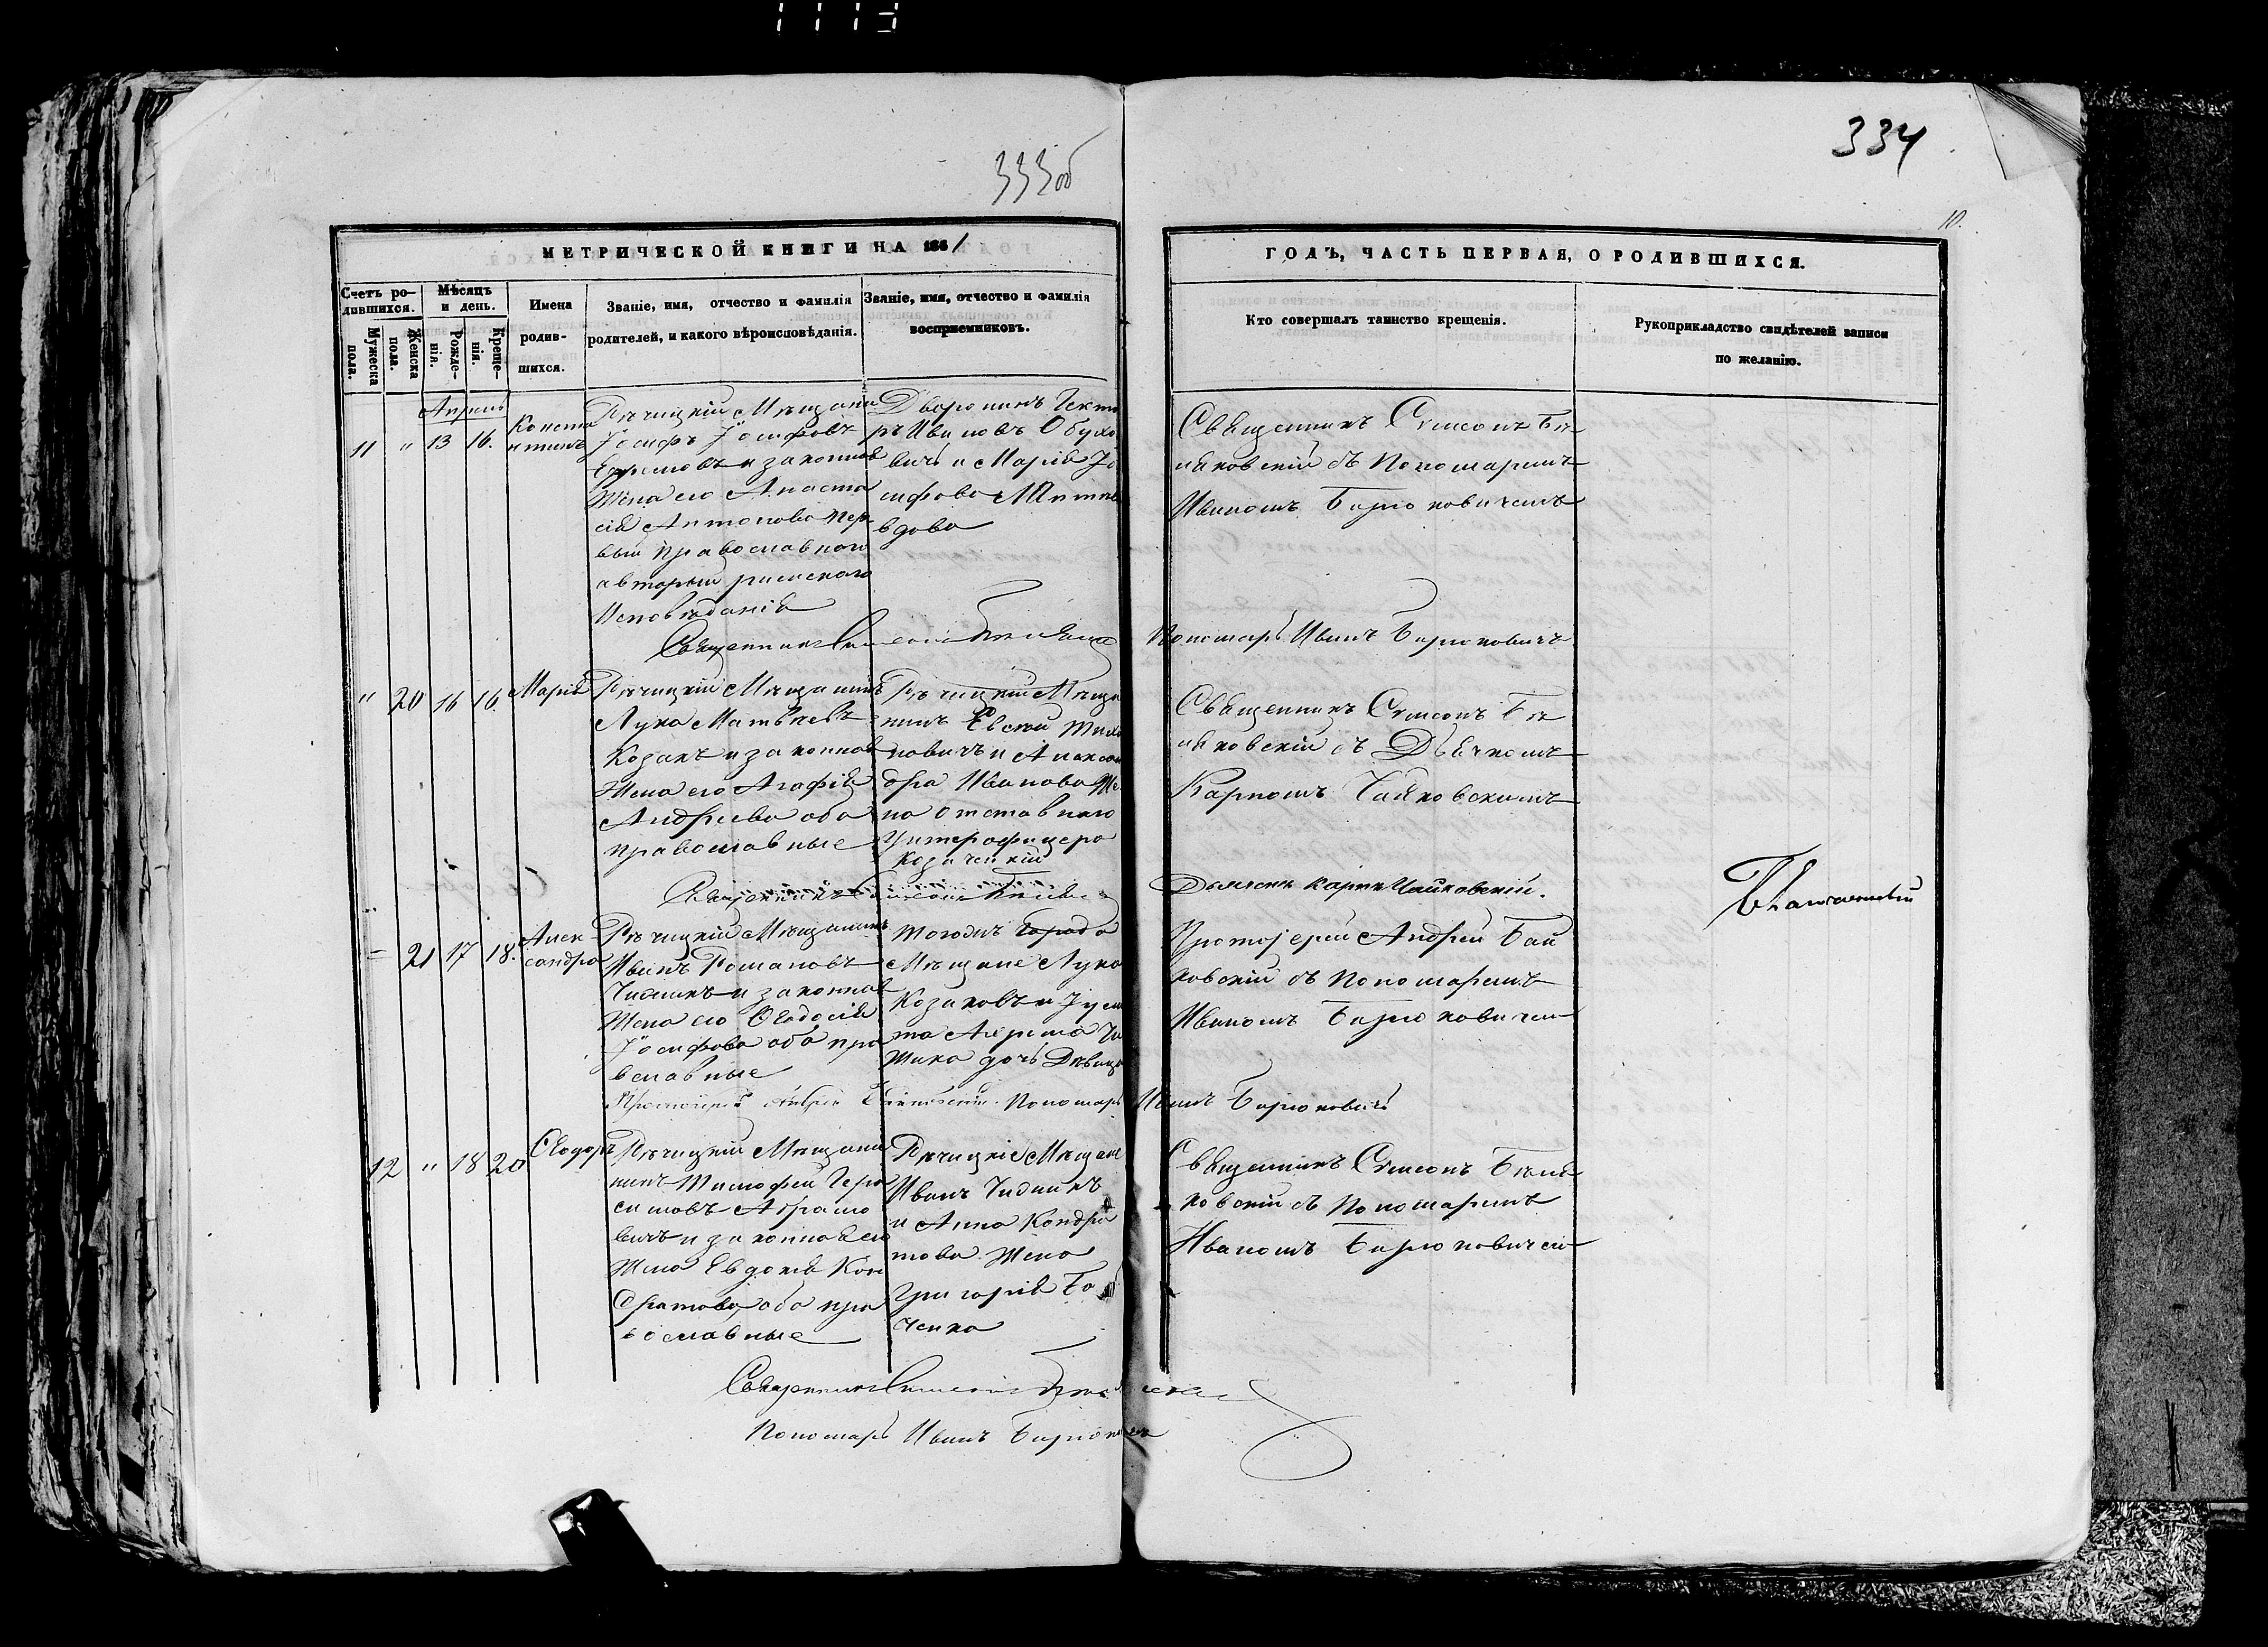 333об
334
10.
МЕТРИЧЕСКОЙ КНИГИ НА 1861
ГОДЪ, ЧАСТЬ ПЕРВАЯ, О РОДИВШИХСЯ.
Счетъ ро-
дившихся.
Мужеска
пола.
Женска
пола.
Мѣсяцъ
и день.
Рожде-
нія.
Креще-
нія.
Имена
родив-
шихся.
Званіе, имя, отчество и фамилія
родителей, и какого вѣроисповѣданія.
Званіе, имя, отчество и фамилія
воспріемниковъ.
Кто совершалъ таинство крещенія.
Рукоприкладство свидѣтелей записи
по желанію.
Апрель
11 " 13 16.
Конста
нтинъ
Рѣчицкій Мѣщани
Іосифъ Іосифовъ
Ефремовъ и законная
Жена его Анаста
сія Антонова пер
вый православнаго
а вторый римскаго
Исповѣданія
Дворянинъ
ръ Ивановъ Обухо
вичъ и Марія Іо
сифова
вдова
Священникъ Симеонъ Бѣ
няковскій съ Пономаремъ
Иваномъ Бирюковичемъ
Священникъ Симеонъ
Пономарь Иванъ Бирюковичъ
" 20 16 16.
Марія
Рѣчицкій Мѣщанинъ
Лука Матвѣевъ
Козакъ и законная
Жена его Агафія
Андреева оба
православные
Рѣчицкій Мѣща
нинъ Евсей
новичъ и Алексан
дра Иванова Же
на отставнаго
Унтерофицера
Священникъ Симеонъ Бѣ
няковскій съ Дьячкомъ
Карпомъ Чайковскимъ
Священникъ Симеонъ
Дьячекъ Карпъ Чайковскій.
21 17 18.
Алек
сандра
Рѣчицкій Мѣщанинъ
Иванъ Романовъ
Чижикъ и законная
Жена его Ѳеодосія
Іосифова оба пра
вславные
Тогожъ города
Мѣщане Лука
Козаковъ и Іули
та Ахрема Чи
жика дочь Дѣвица
Протоіерей Андрей Бай
ковскій съ Пономаремъ
Иваномъ Бирюковичем
Протоіерей Андрей Байковскій. Пономарь Иванъ Бирюковичъ
12 " 18 20
Ѳеодоръ
Рѣчицкій Мѣщани
нинъ Тимофей Гера
симовъ Абрамо
вичъ и законная его
Жена Евдокія Кон
дратова, оба пра
вославные
Рѣчицкіе Мѣщане
Иванъ Чиджикъ
и Анна Кондра
това Жена
Григорія
ченка
Священникъ Симеонъ Бѣня
ковскій съ Пономаремъ
Иваномъ Бирюковичем
Священникъ Симеонъ
Пономарь Иванъ Бирюкович